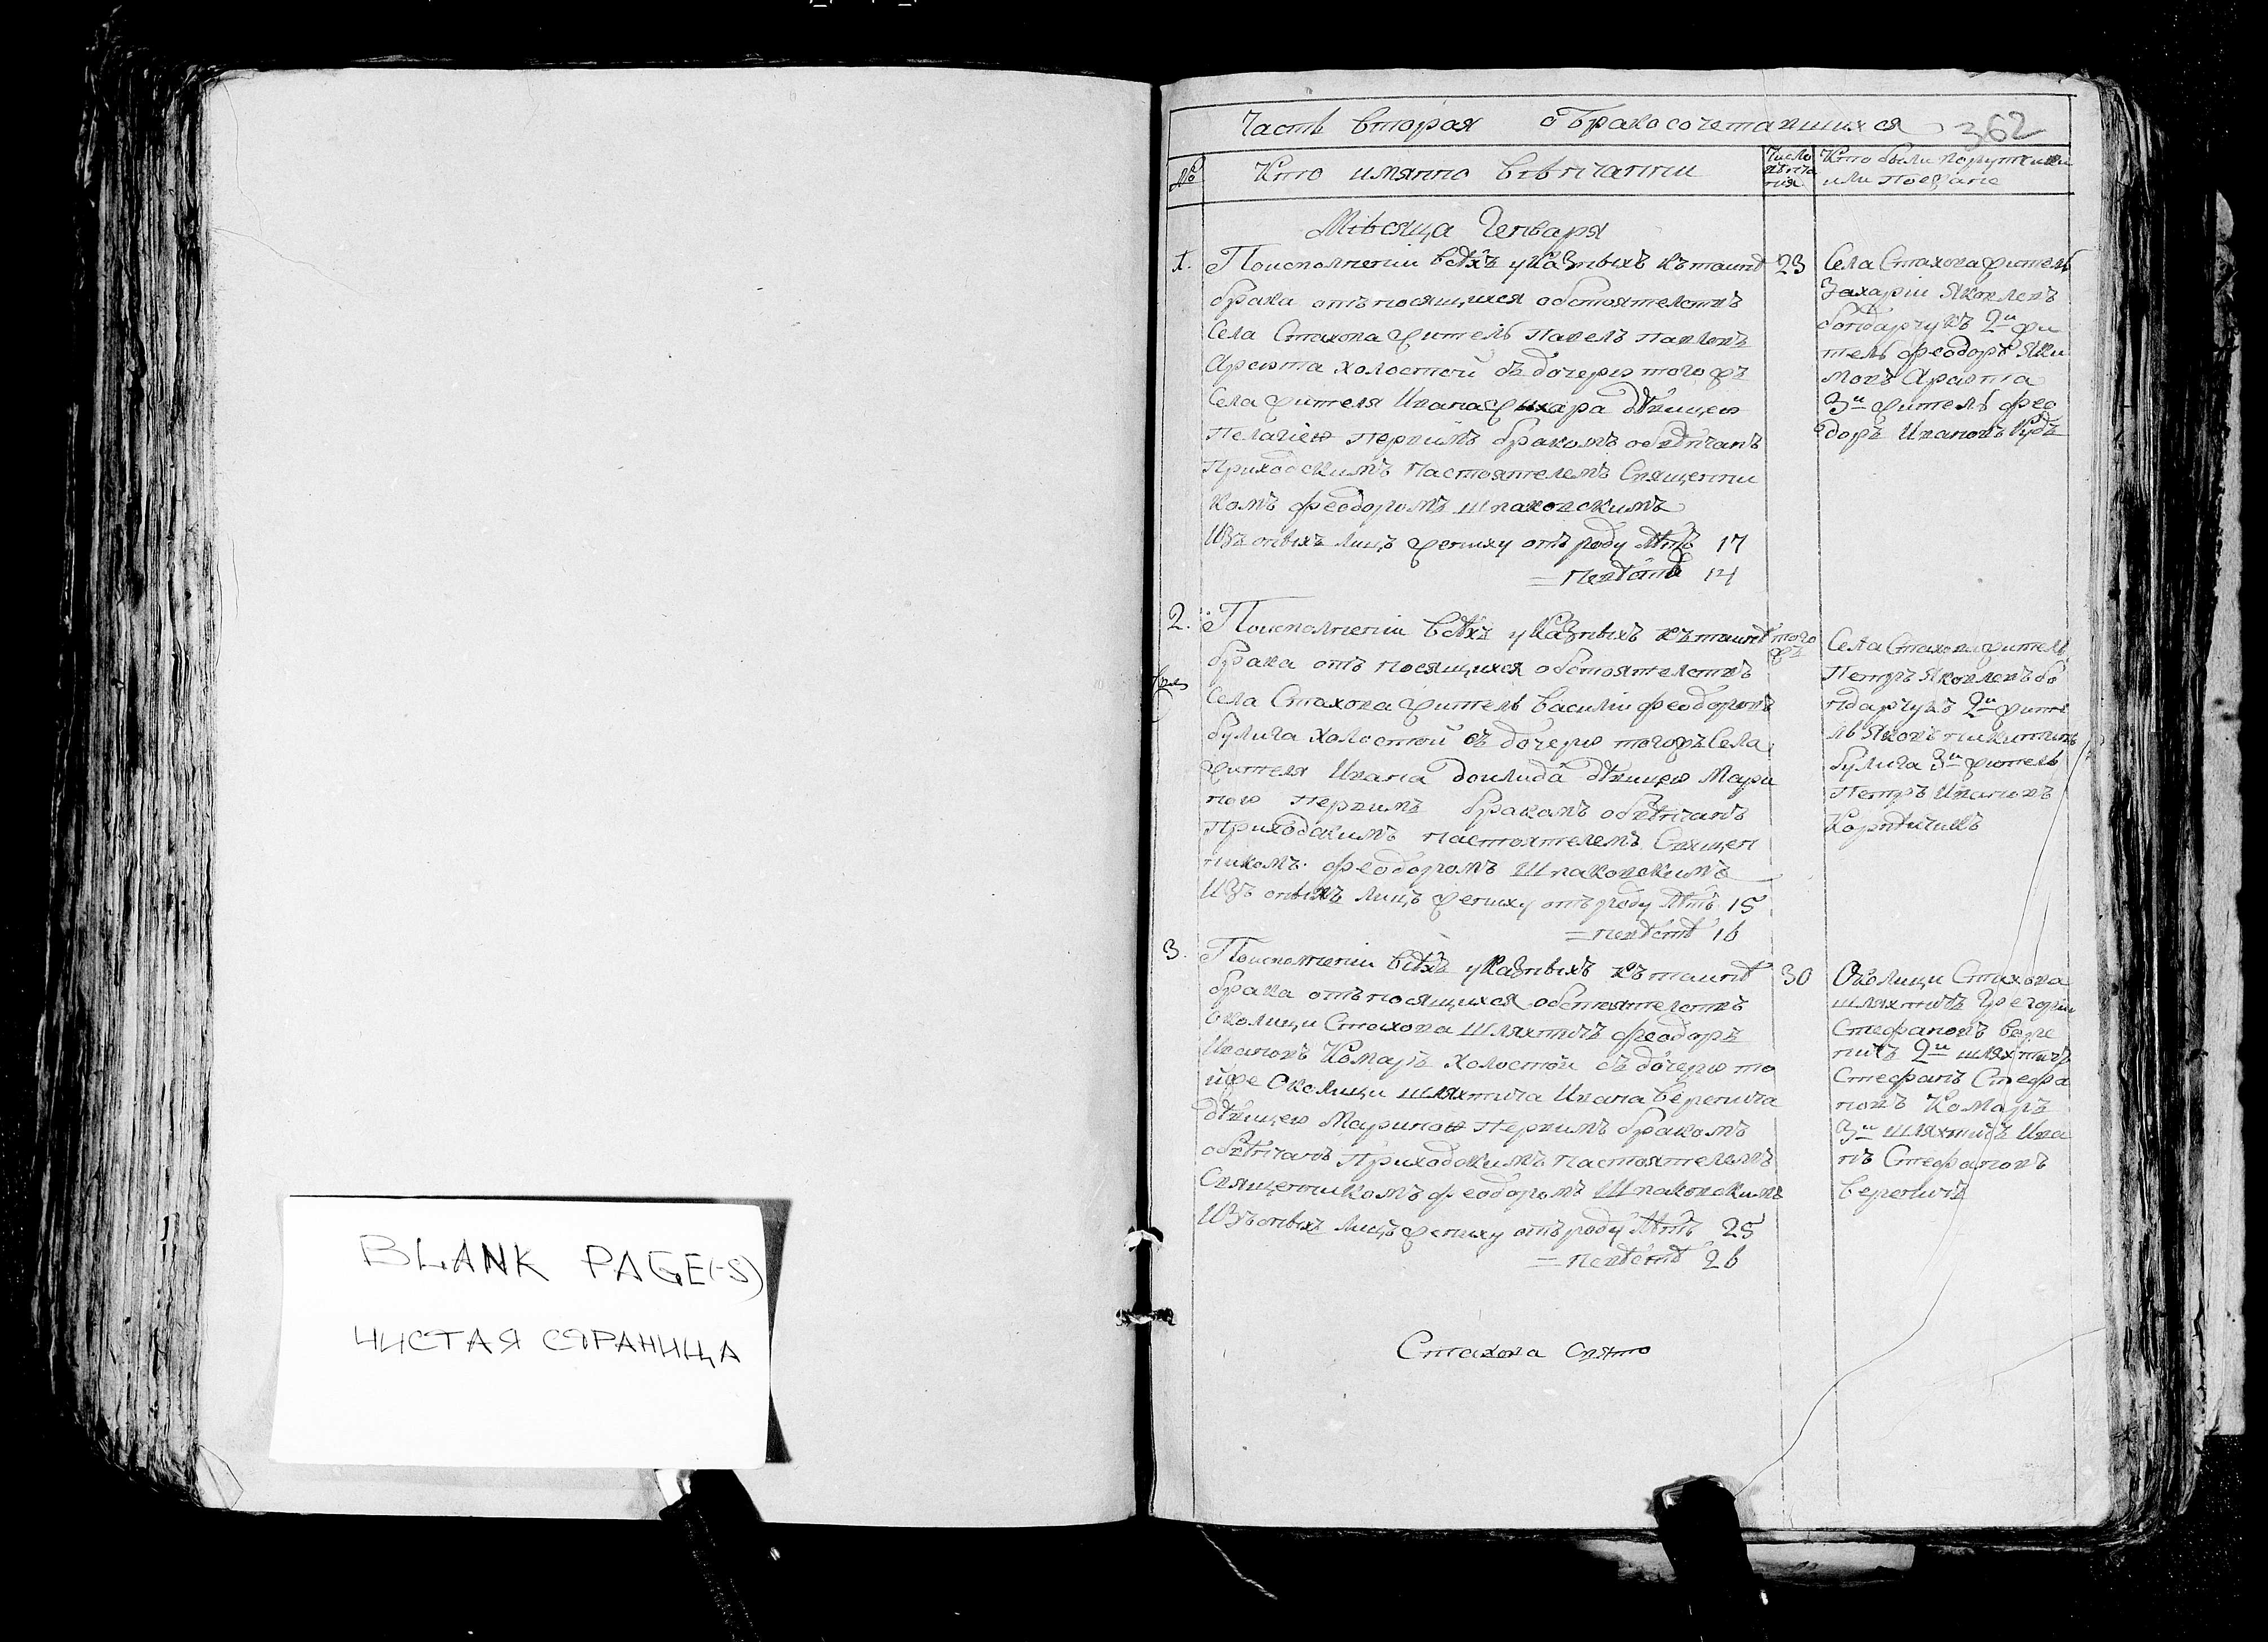 BLANK PAGE(-S)
ЧИСТАЯ СТРАНИЦА
Часть вторая о бракосочетавшихся 362
№
Кто имянно вѣнчанни
Число вѣнчания
Кто были поручители
или поезжане
Мѣсяца Генваря
1. По исполнении всѣхъ указныхъ къ таинѣ
брака отъносящихся обстоятелствъ
Села Стахова житель Павелъ Павловъ
холостой съ дочерю тогожъ
Села жителя Ивана Жихара дѣвицею
Пелагіею первимъ бракомъ обвѣнчанъ
Приходскимъ Настоятелемъ Священни
комъ Феодоромъ Шпаковскимъ
Изъ оныхъ лицъ жениху отъ роду лѣтъ 17
= невѣстѣ 14
23
Села Стахова житель
Захарии Яковлевъ
бондарчукъ 2й жи
тель Феодоръ Яки
мовъ
3й житель Фео
доръ Ивановъ
2. По исполнении всѣхъ указныхъ къ таинѣ
брака отъ носящихся обстоятелствъ
Села Стахова житель Василій Феодоровъ
булига холостой съ дочерю тогожъ Села
жителя Ивана доилида дѣвицею Мари
ною первимъ бракомъ обвѣнчанъ
Приходскимъ настоятелемъ Священ
никомъ Феодоромъ Шпаковскимъ
Изъ оныхъ лицъ жениху отъ роду лѣтъ 15
= невѣстѣ 16
того
жъ
Села Стахова житель
Петръ Яковлевъ бо
ндарчукъ 2й жите
ль Яковъ никитинъ
булига 3й житель
Петръ Ивановъ
3. По исполнении всѣхъ указныхъ къ таинѣ
брака отъносящихся обстоятелствъ
околици Стахова шляхтичъ Феодоръ
Ивановъ Комаръ холостой съ дочерю то
йже Околици шляхтича Ивана Веренича
дѣвицею Мариною первимъ бракомъ
обвѣнчанъ Приходскимъ настоятелемъ
Священникомъ Феодоромъ Шпаковскимъ
Изъ оныхъ лицъ жениху отъ роду лѣтъ 25
= невѣстѣ 26
30
Околици Стахова
шляхтичъ Григорій
Стефановъ Вере
ничъ 2й шляхтичъ
Стефанъ Стефа
новъ Комаръ
3й шляхтичъ Ива
нъ Стефановъ
Вереничъ
Стахова Свято